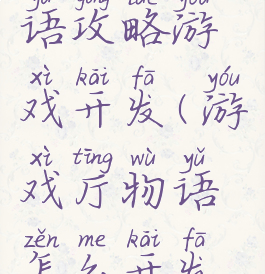 yǔ gōng lüè yóu
语攻略游
xì kāi fā yóu
戏开发(游
xì tīng wù yǔ
戏厅物语
zěn me kāi fā
怎么开发